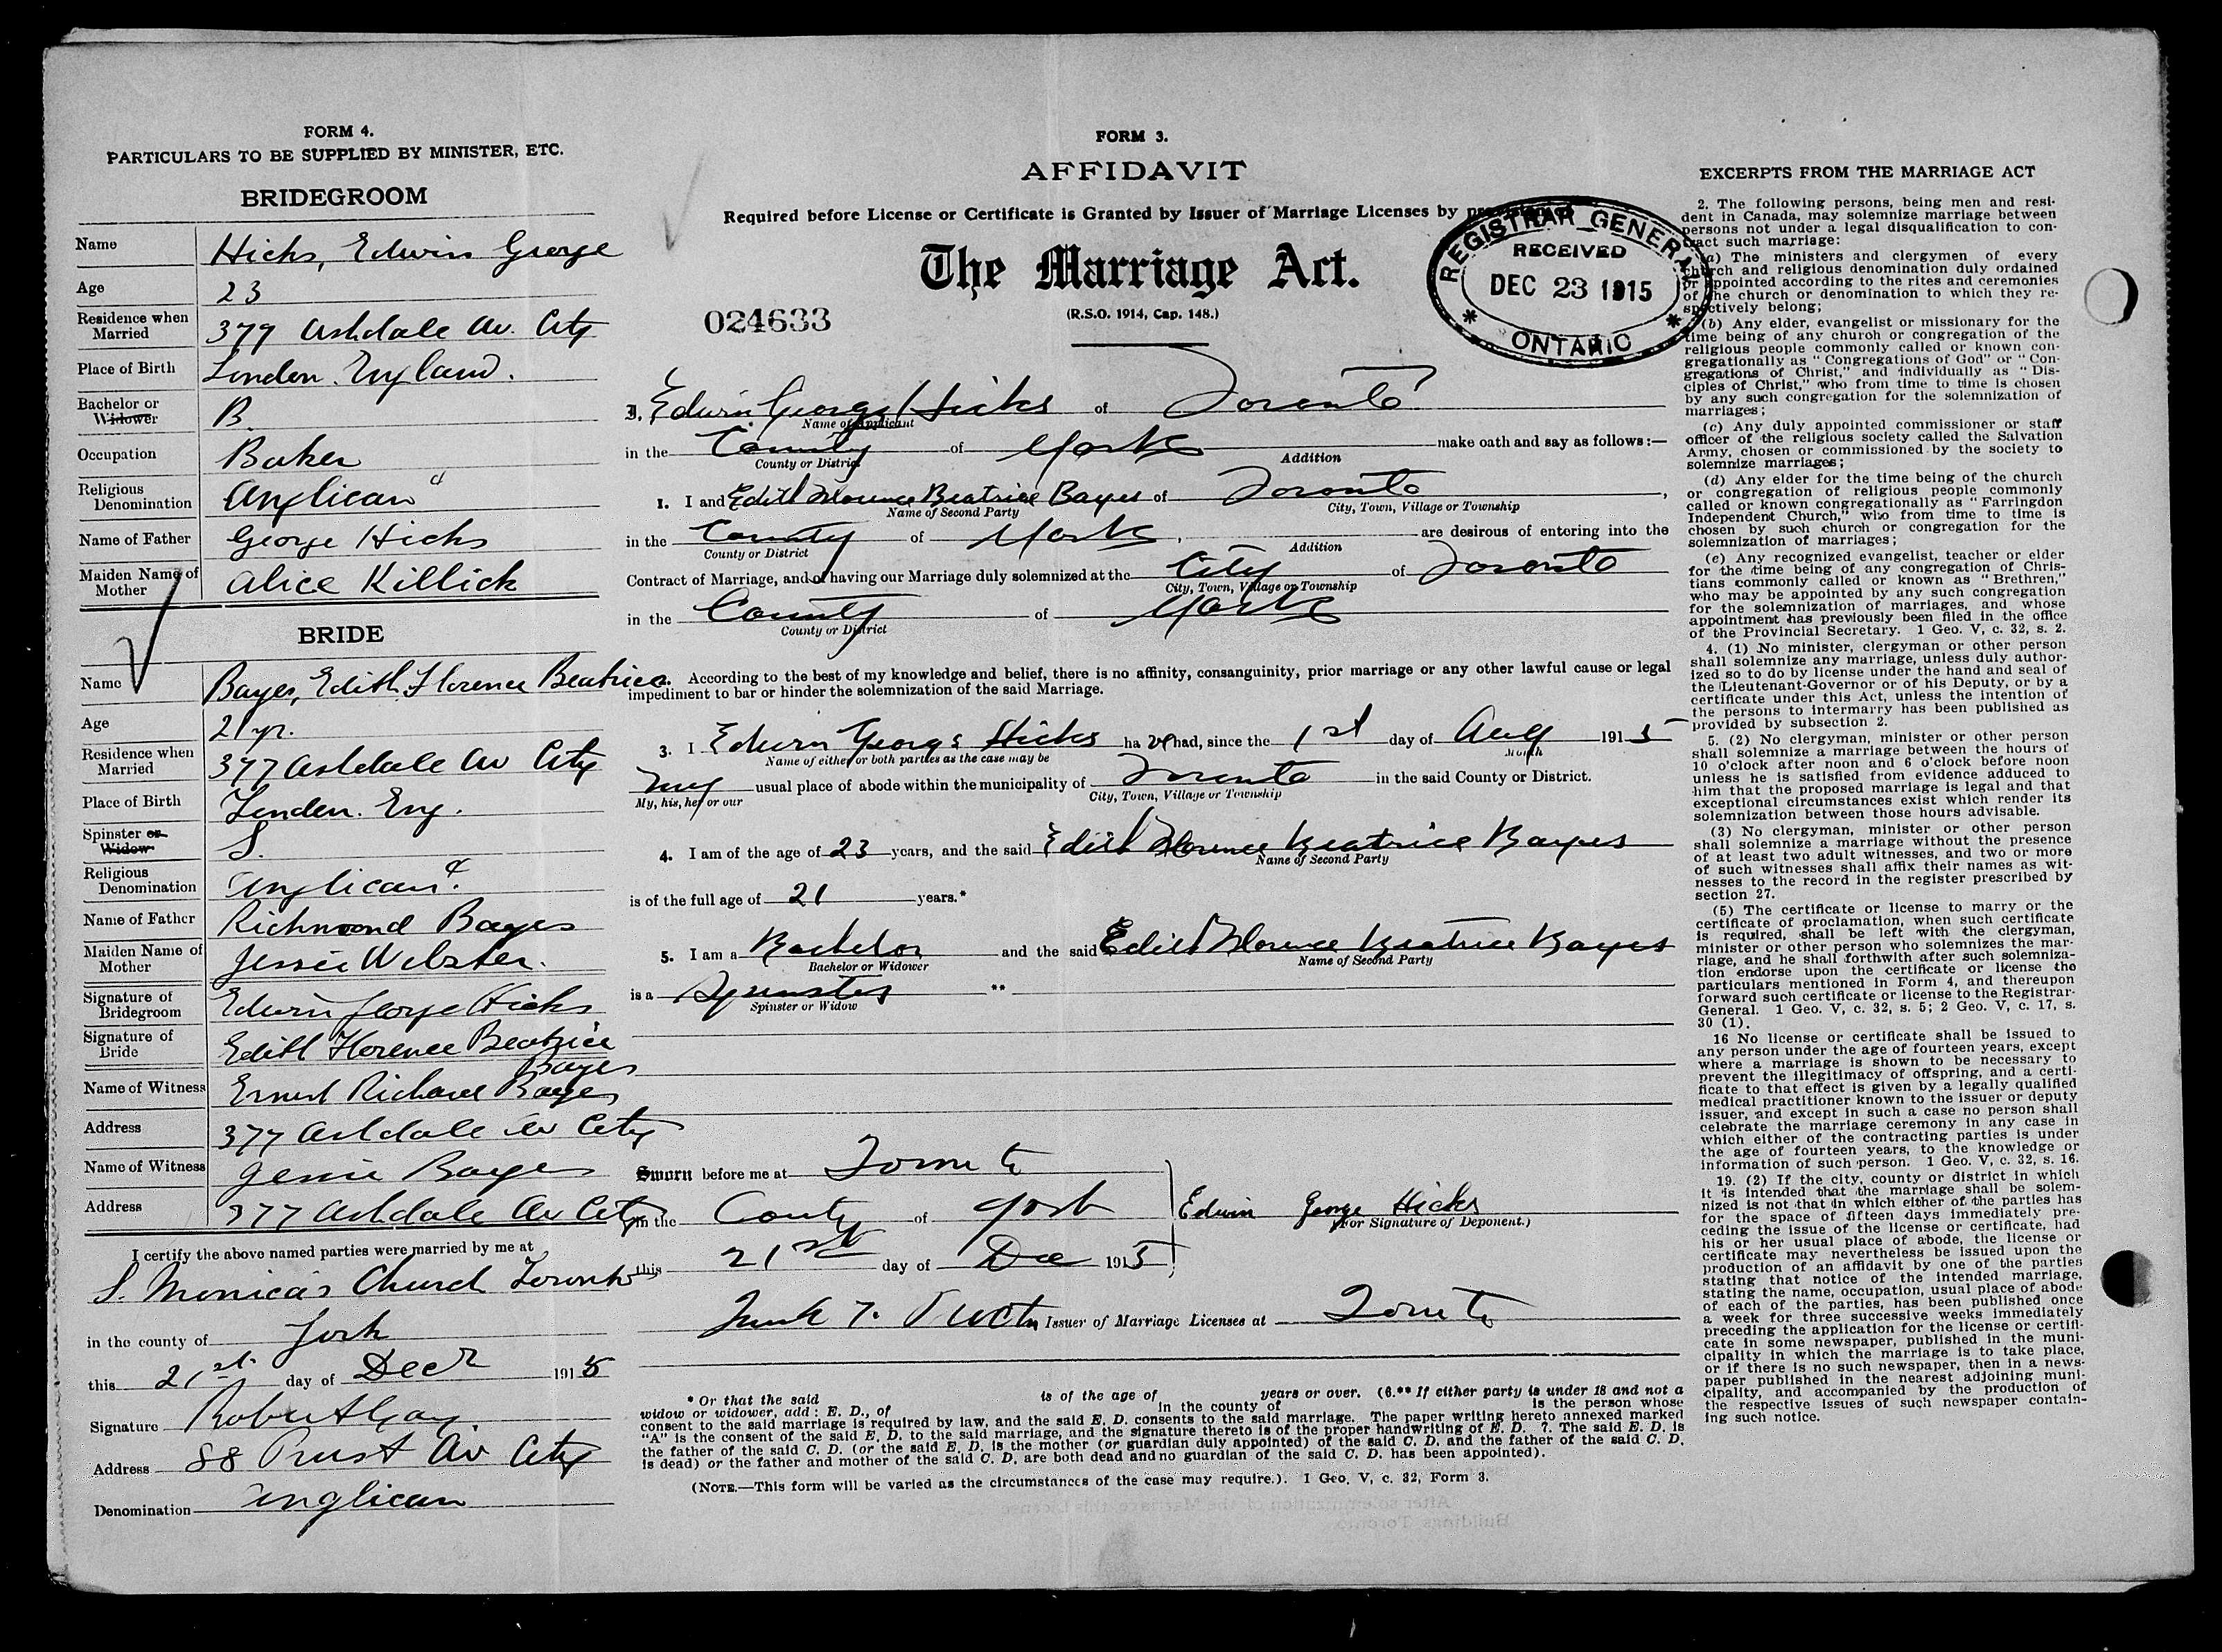 FORM 4.
PARTICULARS TO BE SUPPLIED BY MINISTER, ETC.
BRIDEGROOM
Name Hicks, Edwin George
Age 23
Residence when Married 377 Ashdale Av. City
Place of Birth London. England.
Bachelor or Widower B.
Occupation Baker
Religious Denomination Anglican
Name of Father George Hicks
Maiden Name of Mother Alice Killick
BRIDE
Name Bayes, Edith Florence Beatrice
Age 21 yr.
Residence when Married 377 Ashdale Av City
Place of Birth London. Eng.
Spinster or Widow S.
Religious Denomination Anglican.
Name of Father Richmond Bayes
Maiden Name of Mother Jessie Webster.
Signature of Bridegroom Edwin George Hicks
Signature of Bride Edith Florence Beatrice
Bayes
Name of Witness Ernest Richard Bayes
Address 377 Ashdale Av City
Name of Witness Jessie Bayes
Address 377 Ashdale Av City
I certify the above named parties were married by me at
S. Monica's Church Toronto
in the county of York
this 21st. day of Decr 1915
Signature Robert Gay.
Address 88 Prust Av City
Denomination Anglican
FORM 3.
AFFIDAVIT
Required before License or Certificate is Granted by Issuer of Marriage Licenses by
The Marriage Act.
(R.S.O. 1914, Cap. 148.)
024633
REGISTRAR GENERAL
RECEIVED
DEC 23 1915
* ONTARIO *
I, Edwin George Hicks of Toronto
Name of Applicant
in the County of York make oath and say as follows:—
County or District Addition
1. I and Edith Florence Beatrice Bayes of Toronto,
Name of Second Party City, Town, Village or Township
in the County of York, are desirous of entering into the
County or District Addition
Contract of Marriage, and of having our Marriage duly solemnized at the City of Toronto
City, Town, Village or Township
in the County of York
County or District
According to the best of my knowledge and belief, there is no affinity, consanguinity, prior marriage or any other lawful cause or legal
impediment to bar or hinder the solemnization of the said Marriage.
3. I Edwin George Hicks ha ve had, since the 1st day of Aug 1915
Name of either or both parties as the case may be Month
my usual place of abode within the municipality of Toronto in the said County or District.
My, his, her or our City, Town, Village or Township
4. I am of the age of 23 years, and the said Edith Florence Beatrice Bayes
Name of Second Party
is of the full age of 21 years.*
5. I am a Bachelor and the said Edith Florence Beatrice Bayes
Bachelor or Widower Name of Second Party
is a Spinster **
Spinster or Widow
Sworn before me at Toronto
in the County of York
this 21st day of Dec 1915
Edwin George Hicks
(For Signature of Deponent.)
Issuer of Marriage Licenses at Toronto
* Or that the said is of the age of years or over. (6.** If either party is under 18 and not a
widow or widower, add: E. D., of in the county of is the person whose
consent to the said marriage is required by law, and the said E. D. consents to the said marriage. The paper writing hereto annexed marked
"A" is the consent of the said E. D. to the said marriage, and the signature thereto is of the proper handwriting of E. D. 7. The said E. D. is
the father of the said C. D. (or the said E. D. is the mother (or guardian duly appointed) of the said C. D. and the father of the said C. D.
is dead) or the father and mother of the said C. D. are both dead and no guardian of the said C. D. has been appointed).
(NOTE.—This form will be varied as the circumstances of the case may require.). 1 Geo. V, c. 32, Form 3.
EXCERPTS FROM THE MARRIAGE ACT
2. The following persons, being men and resi-
dent in Canada, may solemnize marriage between
persons not under a legal disqualification to con-
tract such marriage:
(a) The ministers and clergymen of every
church and religious denomination duly ordained
or appointed according to the rites and ceremonies
of the church or denomination to which they re-
spectively belong;
(b) Any elder, evangelist or missionary for the
time being of any church or congregation of the
religious people commonly called or known con-
gregationally as "Congregations of God" or "Con-
gregations of Christ," and individually as "Dis-
ciples of Christ," who from time to time is chosen
by any such congregation for the solemnization of
marriages;
(c) Any duly appointed commissioner or staff
officer of the religious society called the Salvation
Army, chosen or commissioned by the society to
solemnize marriages;
(d) Any elder for the time being of the church
or congregation of religious people commonly
called or known congregationally as "Farringdon
Independent Church," who from time to time is
chosen by such church or congregation for the
solemnization of marriages;
(e) Any recognized evangelist, teacher or elder
for the time being of any congregation of Chris-
tians commonly called or known as "Brethren,"
who may be appointed by any such congregation
for the solemnization of marriages, and whose
appointment has previously been filed in the office
of the Provincial Secretary. 1 Geo. V, c. 32, s. 2.
4. (1) No minister, clergyman or other person
shall solemnize any marriage, unless duly author-
ized so to do by license under the hand and seal of
the Lieutenant-Governor or of his Deputy, or by a
certificate under this Act, unless the intention of
the persons to intermarry has been published as
provided by subsection 2.
5. (2) No clergyman, minister or other person
shall solemnize a marriage between the hours of
10 o'clock after noon and 6 o'clock before noon
unless he is satisfied from evidence adduced to
him that the proposed marriage is legal and that
exceptional circumstances exist which render its
solemnization between those hours advisable.
(3) No clergyman, minister or other person
shall solemnize a marriage without the presence
of at least two adult witnesses, and two or more
of such witnesses shall affix their names as wit-
nesses to the record in the register prescribed by
section 27.
(5) The certificate or license to marry or the
certificate of proclamation, when such certificate
is required, shall be left with the clergyman,
minister or other person who solemnizes the mar-
riage, and he shall forthwith after such solemniza-
tion endorse upon the certificate or license the
particulars mentioned in Form 4, and thereupon
forward such certificate or license to the Registrar-
General. 1 Geo. V, c. 32, s. 5; 2 Geo. V, c. 17, s.
30 (1).
16 No license or certificate shall be issued to
any person under the age of fourteen years, except
where a marriage is shown to be necessary to
prevent the illegitimacy of offspring, and a certi-
ficate to that effect is given by a legally qualified
medical practitioner known to the issuer or deputy
issuer, and except in such a case no person shall
celebrate the marriage ceremony in any case in
which either of the contracting parties is under
the age of fourteen years, to the knowledge or
information of such person. 1 Geo. V, c. 32, s. 16.
19. (2) If the city, county or district in which
it is intended that the marriage shall be solem-
nized is not that in which either of the parties has
for the space of fifteen days immediately pre-
ceding the issue of the license or certificate, had
his or her usual place of abode, the license or
certificate may nevertheless be issued upon the
production of an affidavit by one of the parties
stating that notice of the intended marriage,
stating the name, occupation, usual place of abode
of each of the parties, has been published once
a week for three successive weeks immediately
preceding the application for the license or certifi-
cate in some newspaper, published in the muni-
cipality in which the marriage is to take place,
or if there is no such newspaper, then in a news-
paper published in the nearest adjoining muni-
cipality, and accompanied by the production of
the respective issues of such newspaper contain-
ing such notice.